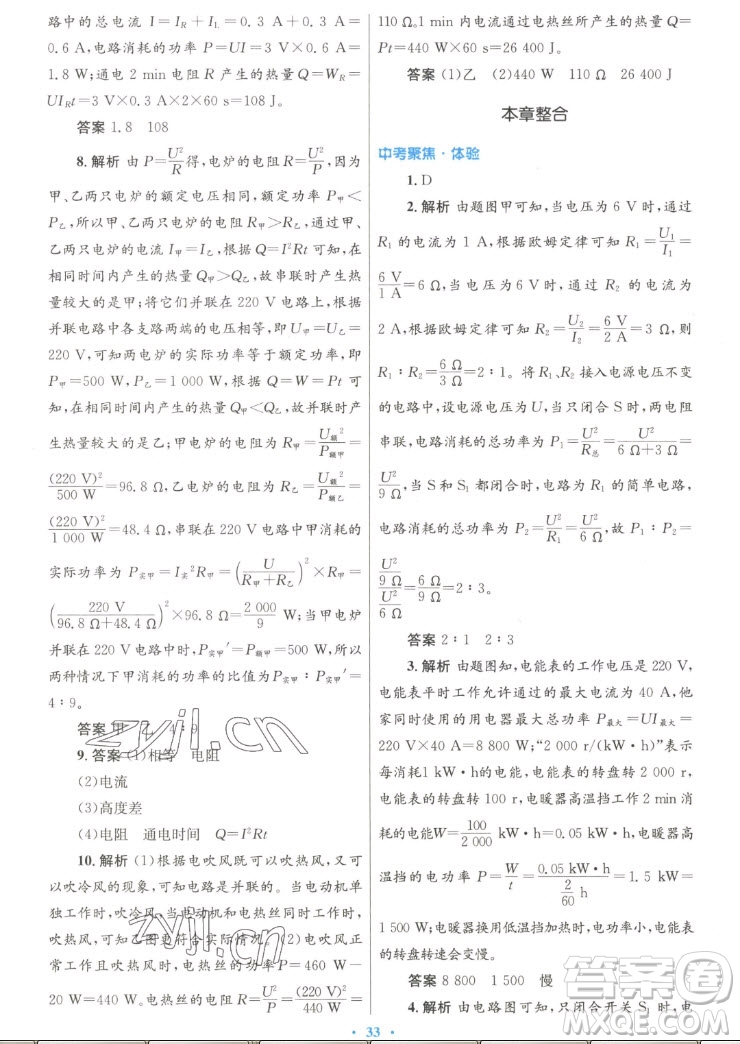 路中的总电流 I＝I_R＋I_L＝0.3 A＋0.3 A＝
0.6 A，电路消耗的功率 P＝UI＝3 V×0.6 A＝
1.8 W；通电 2 min 电阻 R 产生的热量 Q＝W_R＝
UI_Rt＝3 V×0.3 A×2×60 s＝108 J。
答案 1.8 108
8. 解析 由 P＝U²/R得，电炉的电阻 R＝U²/P，因为
甲、乙两只电炉的额定电压相同，额定功率 P甲＜
P乙，所以甲、乙两只电炉的电阻 R甲＞R乙，通过甲、
乙两只电炉的电流 I甲＝I乙，根据 Q＝I²Rt 可知，在
相同时间内产生的热量 Q甲＞Q乙，故串联时产生热
量较大的是甲；将它们并联在 220 V 电路上，根据
并联电路中各支路两端的电压相等，即 U甲＝U乙＝
220 V，可知两电炉的实际功率等于额定功率，即
P甲＝500 W，P乙＝1 000 W，根据 Q＝W＝Pt 可
知，在相同时间内产生的热量 Q甲＜Q乙，故并联时产
生热量较大的是乙；甲电炉的电阻 R甲＝U额²/P额甲＝
(220 V)²/500 W＝96.8 Ω，乙电炉的电阻 R乙＝U额²/P额乙＝
(220 V)²/1 000 W＝48.4 Ω，串联在 220 V 电路中甲消耗的
实际功率为 P实甲＝I实²R甲＝(U/(R甲＋R乙))²×R甲＝
(220 V/(96.8 Ω＋48.4 Ω))²×96.8 Ω＝2 000/9 W；当甲电炉
并联在 220 V 电路中时，P实甲′＝P额甲＝500 W，所以
两种情况下甲消耗的功率的比值为 P实甲∶P实甲′＝
4∶9。
答案 甲 乙 4∶9
9. 答案 (1)相等 电阻
(2)电流
(3)高度差
(4)电阻 通电时间 Q＝I²Rt
10. 解析 (1)根据电吹风既可以吹热风，又可
以吹冷风的现象，可知电路是并联的。当电动机单
独工作时，吹冷风，电动机和电热丝同时工作时，
吹热风，可知乙图更符合实际情况。(2)电吹风正
常工作且吹热风时，电热丝的功率 P＝460 W－
20 W＝440 W，电热丝的电阻 R＝U²/P＝(220 V)²/440 W＝
110 Ω。1 min 内电流通过电热丝所产生的热量 Q＝
Pt＝440 W×60 s＝26 400 J
答案 (1)乙 (2)440 W 110 Ω 26 400 J
本章整合
中考聚焦·体验
1. D
2. 解析 由题图甲可知，当电压为 6 V 时，通过
R₁ 的电流为 1 A，根据欧姆定律可知 R₁＝U₁/I₁＝
6 V/1 A＝6 Ω，当电压为 6 V 时，通过 R₂ 的电流为
2 A，根据欧姆定律可知 R₂＝U₂/I₂＝6 V/2 A＝3 Ω，则
R₁∶R₂＝6 Ω/3 Ω＝2∶1。将 R₁、R₂ 接入电源电压不变
的电路中，设电源电压为 U，当只闭合 S 时，两电阻
串联，电路消耗的总功率为 P₁＝U²/R总＝U²/(6 Ω＋3 Ω)＝
U²/9 Ω，当 S和 S₁ 都闭合时，电路为 R₁ 的简单电路，
电路消耗的总功率为 P₂＝U²/R₁＝U²/6 Ω，故 P₁∶P₂＝
(U²/9 Ω)/(U²/6 Ω)＝6 Ω/9 Ω＝2∶3。
答案 2∶1 2∶3
3. 解析 由题图知，电能表的工作电压是 220 V，
电能表平时工作允许通过的最大电流为 40 A，他
家同时使用的用电器最大总功率 P最大＝UI最大＝
220 V×40 A＝8 800 W；“2 000 r/(kW·h)”表示
每消耗 1 kW·h 的电能，电能表的转盘转 2 000 r，
电能表的转盘转 100 r，电暖器高温挡工作 2 min 消
耗的电能W＝100/2 000 kW·h＝0.05 kW·h，电暖器高
温挡的电功率 P＝W/t＝0.05 kW·h/(2/60 h)＝1.5 kW＝
1 500 W；电暖器换用低温挡加热时，电功率小，电能表
的转盘转速会变慢。
答案 8 800 1 500 慢
4. 解析 由电路图可知，只闭合开关 S₁ 时，电
33
zyjl.cn
zyjl.cn
答案卷